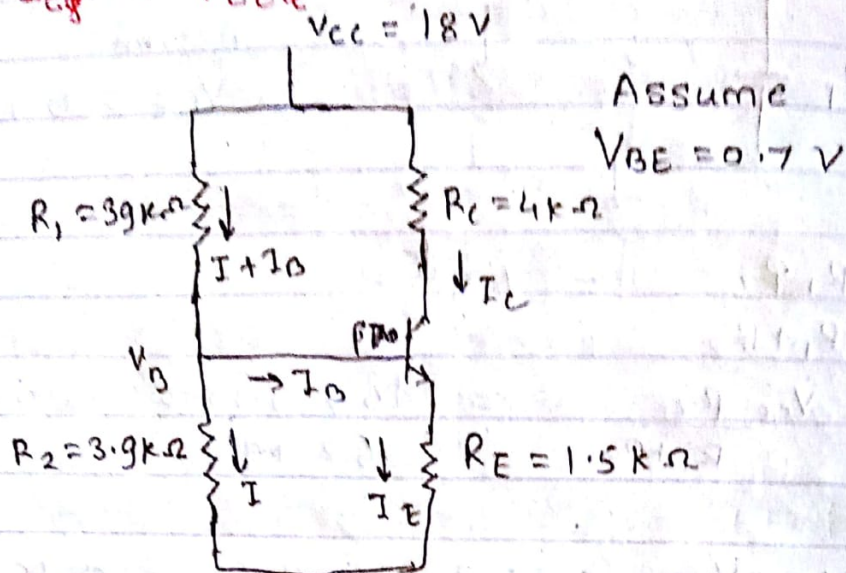 Vcc = 18 V
Assume
VBE = 0.7 V
R1 = 39KΩ
RC = 4KΩ
I + IB
IC
VB
→ IB
R2 = 3.9KΩ
I
IE
RE = 1.5 KΩ